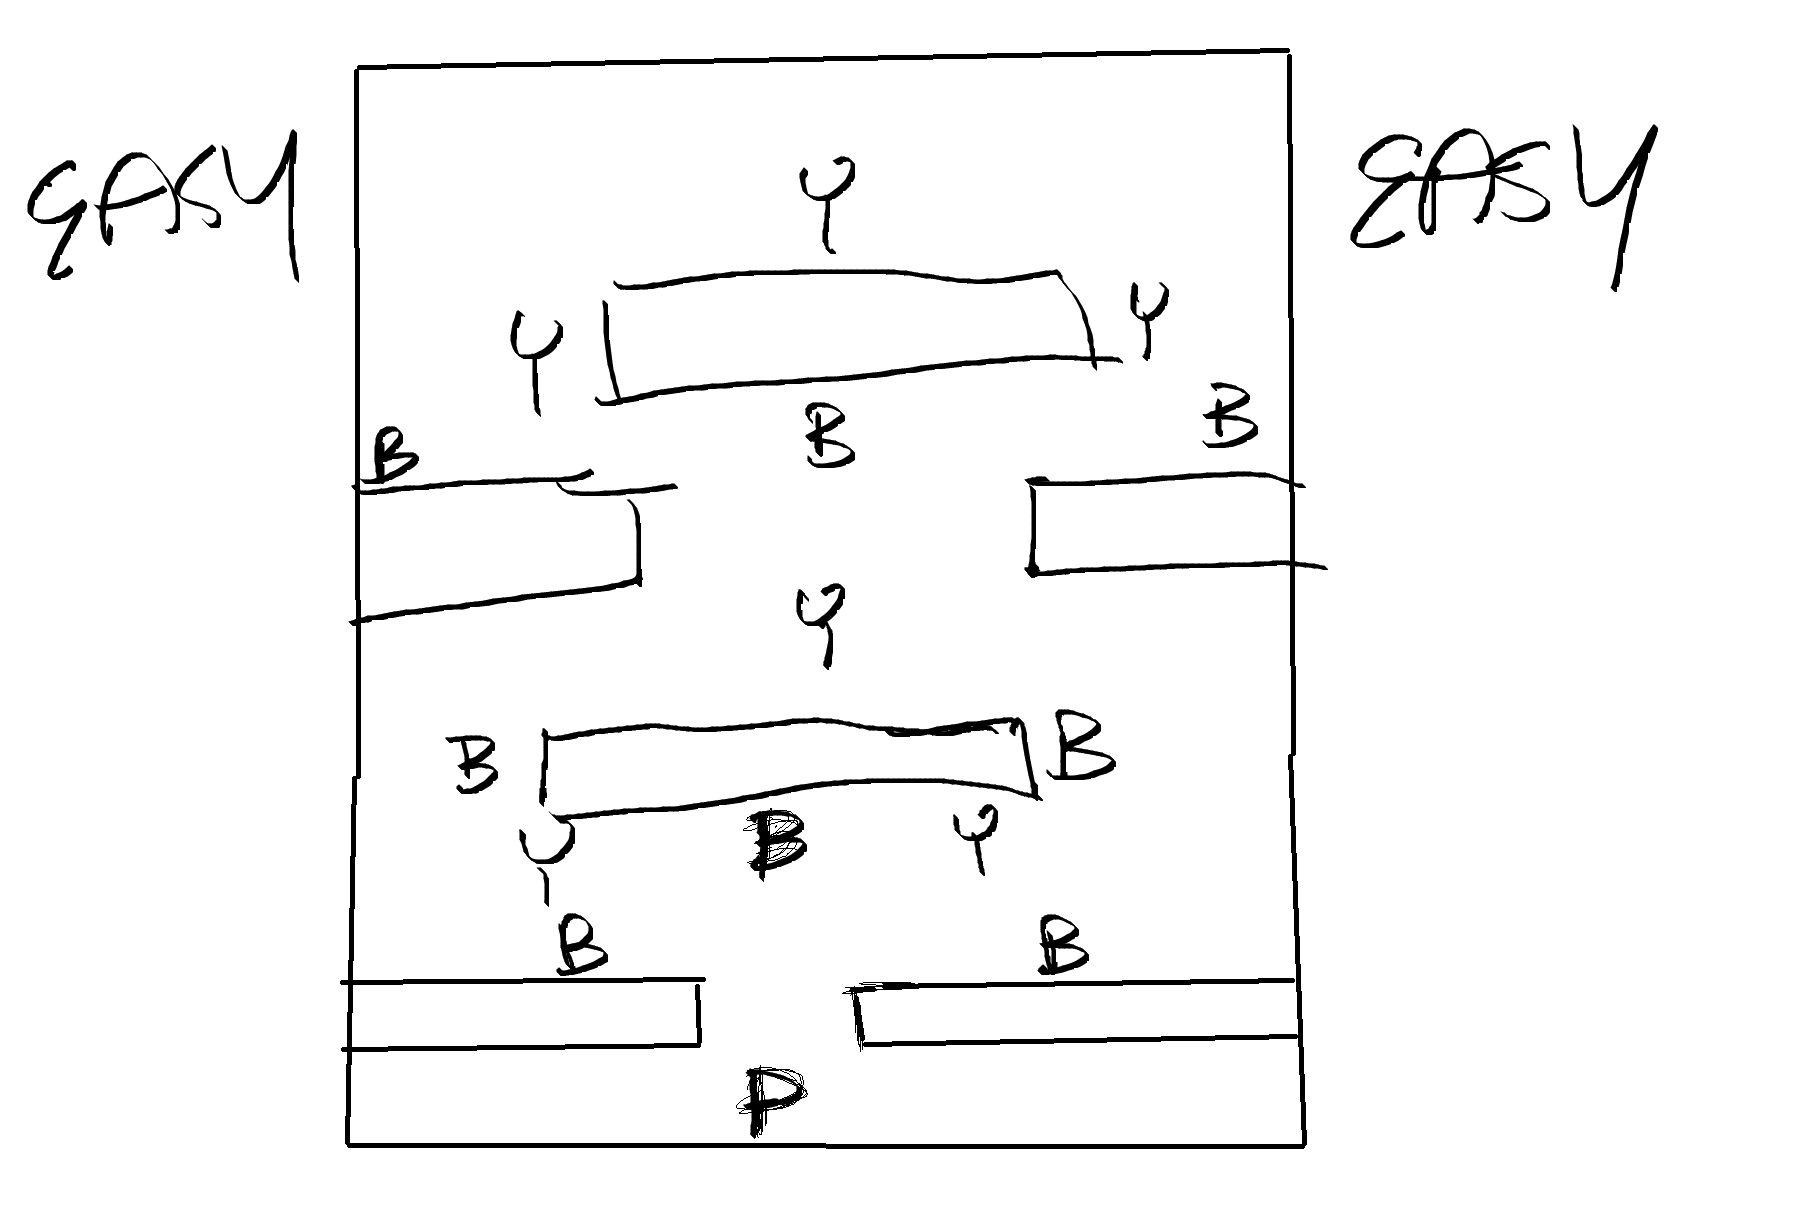 EASY EASY
Y
Y Y
B B B
Y
B B
Y B Y
B B
P